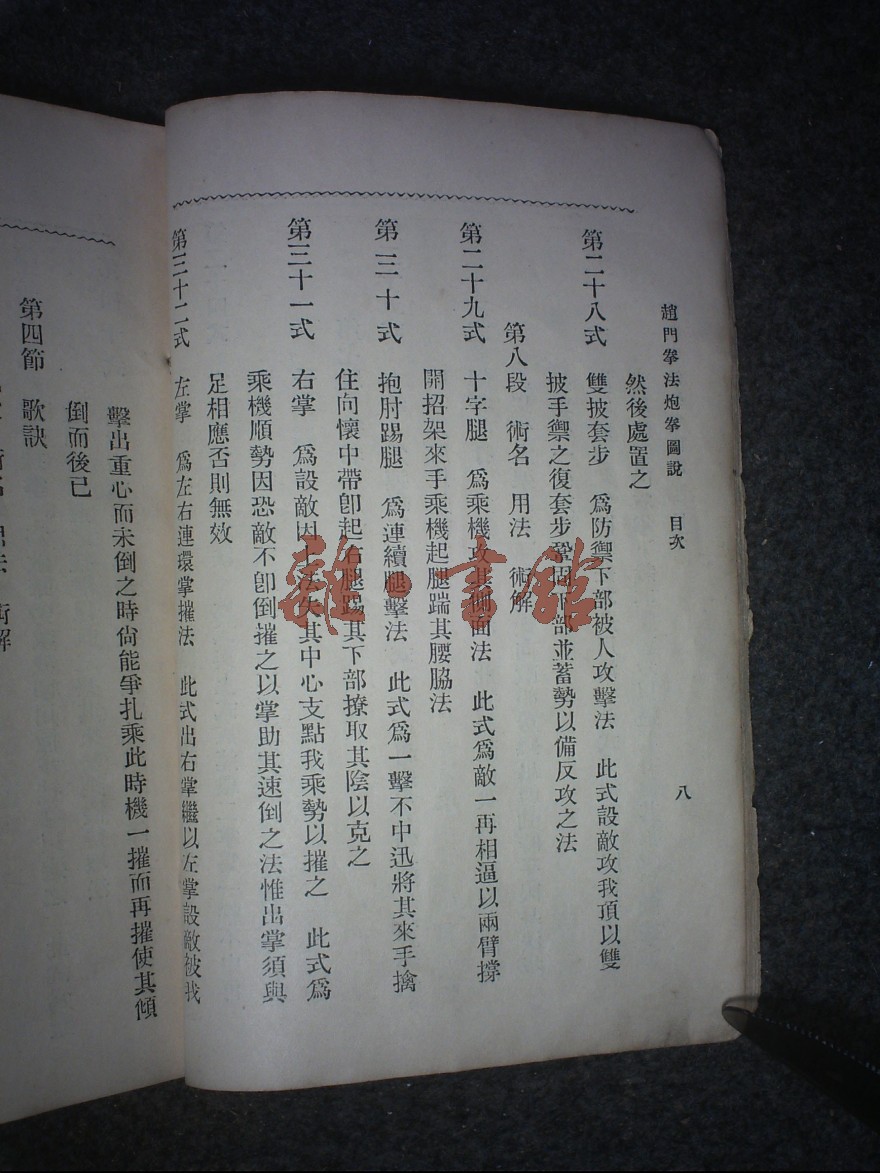 趙門拳法炮拳圖說　目次　八
然後處置之
第二十八式　雙披套步　爲防禦下部被人攻擊法　此式設敵攻我頂以雙
披手禦之復套步鞏固下部並蓄勢以備反攻之法
第八段　術名　用法　術解
第二十九式　十字腿　爲乘機攻其側面法　此式爲敵一再相逼以兩臂撐
開招架來手乘機起腿踹其腰脇法
第三十式　抱肘踢腿　爲連續腿擊法　此式爲一擊不中迅將其來手擒
住向懷中帶卽起右腿踢其下部撩取其陰以克之
第三十一式　右掌　爲設敵因上法失其中心支點我乘勢以摧之　此式爲
乘機順勢因恐敵不卽倒摧之以掌助其速倒之法惟出掌須與
足相應否則無效
第三十二式　左掌　爲左右連環掌摧法　此式出右掌繼以左掌設敵被我
擊出重心而未倒之時尙能爭扎乘此時機一摧而再摧使其傾
倒而後已
第四節　歌訣
術解
雜·書館